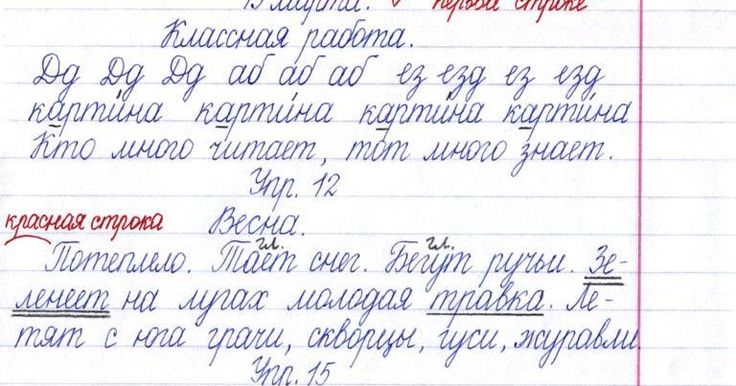 15 марта. √ первой строке
Классная работа.
Дд Дд Дд аб аб аб ез езд ез езд
карти́на карти́на карти́на карти́на
Кто много читает, тот много знает.
Упр. 12
красная строка Весна.
гл. гл.
Потеплело. Тает снег. Бегут ручьи. Зе-
ленеет на лугах молодая травка. Ле-
тят с юга грачи, скворцы, гуси, журавли.
Упр. 15